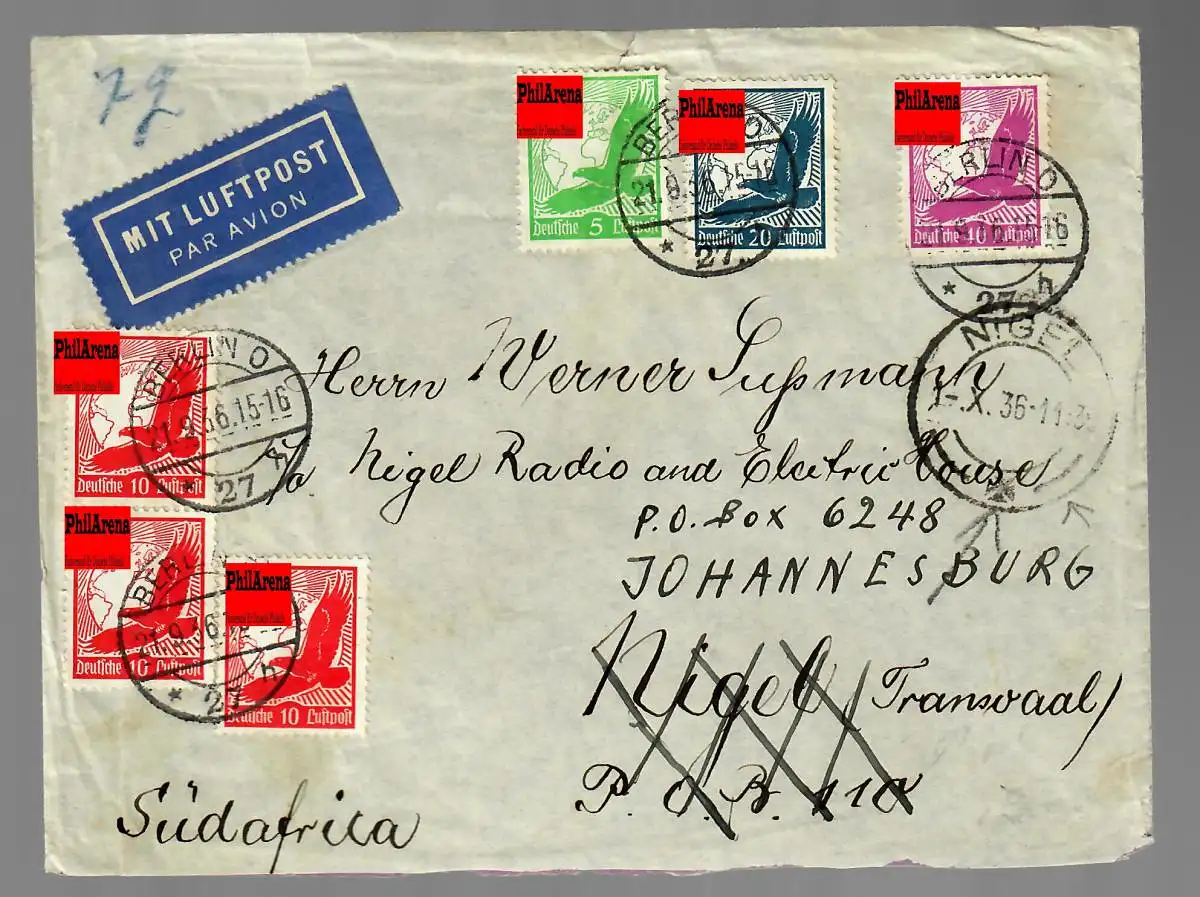 72
MIT LUFTPOST
PAR AVION
PhilArena
Deutsche 5 Luftpost
PhilArena
Deutsche 20 Luftpost
PhilArena
Deutsche 40 Luftpost
BERLIN O
21.9.36.15-16
* 27
BERLIN O
21.9.36.15-16
* 27 h
NIGEL
1-.X.36-11.3
PhilArena
Deutsche 10 Luftpost
BERLIN O
21.9.36.15-16
* 27
PhilArena
Deutsche 10 Luftpost
PhilArena
Deutsche 10 Luftpost
21.9.36
* 27 h
Herrn Werner Sußmann
c/o Nigel Radio and Electric House
P.O. BOX 6248
JOHANNESBURG
Nigel (Transvaal)
P.O.B. 110
Südafrica